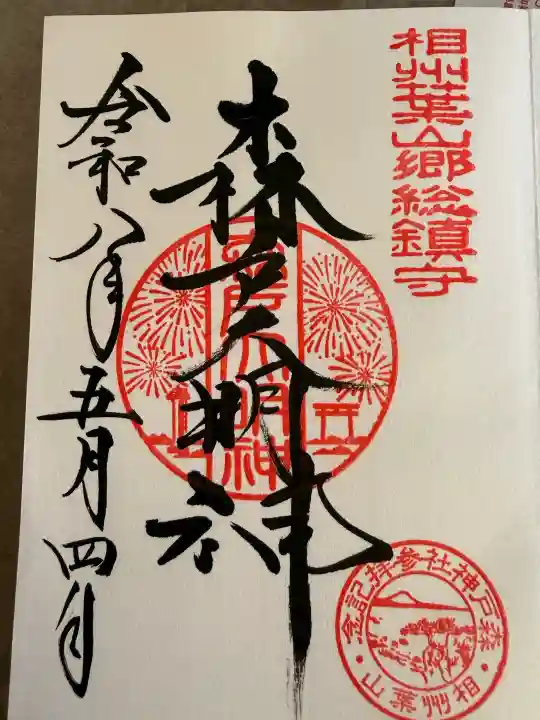 相州葉山郷総鎮守
森戸大明神
森戸大明神
令和八年五月四日
森戸神社参拝記念
相州葉山